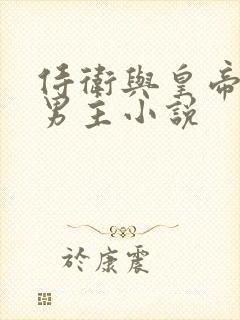 侍衛與皇帝
男主小說
於康震